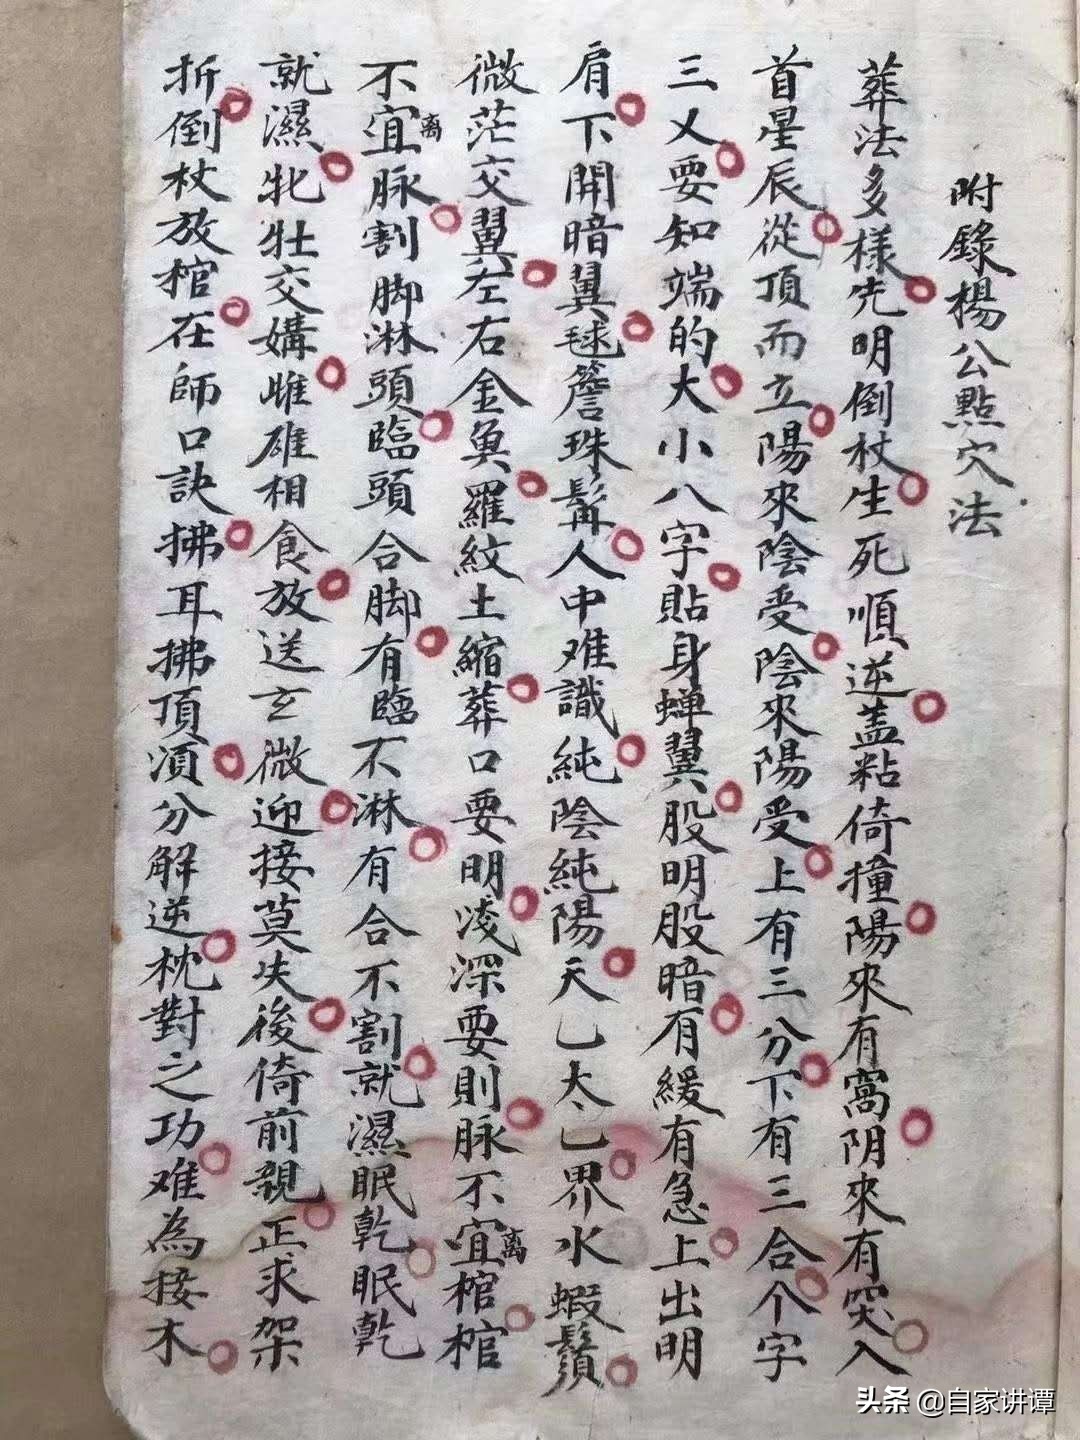 附錄楊公點穴法
葬法多樣先明倒杖生死順逆盖粘倚撞陽來有窩阴來有突入
首星辰從頂而立陽來陰受陰來陽受上有三分下有三合个字
三乂要知端的大小八字貼身蝉翼股明股暗有緩有急上出明
肩下開暗翼毬簷珠髯人中难識純陰純陽天乙太乙界水蝦鬚
微茫交翼左右金魚羅紋土縮葬口要明浅深要則脉不宜离棺棺
不宜离脉割脚淋頭臨頭合脚有臨不淋有合不割就濕眠乾眠乾
就濕牝牡交媾雌雄相食放送玄微迎接莫失後倚前親正求架
折倒杖放棺在師口訣拂耳拂頂須分解逆枕對之功难為接木
头条 @自家讲谭